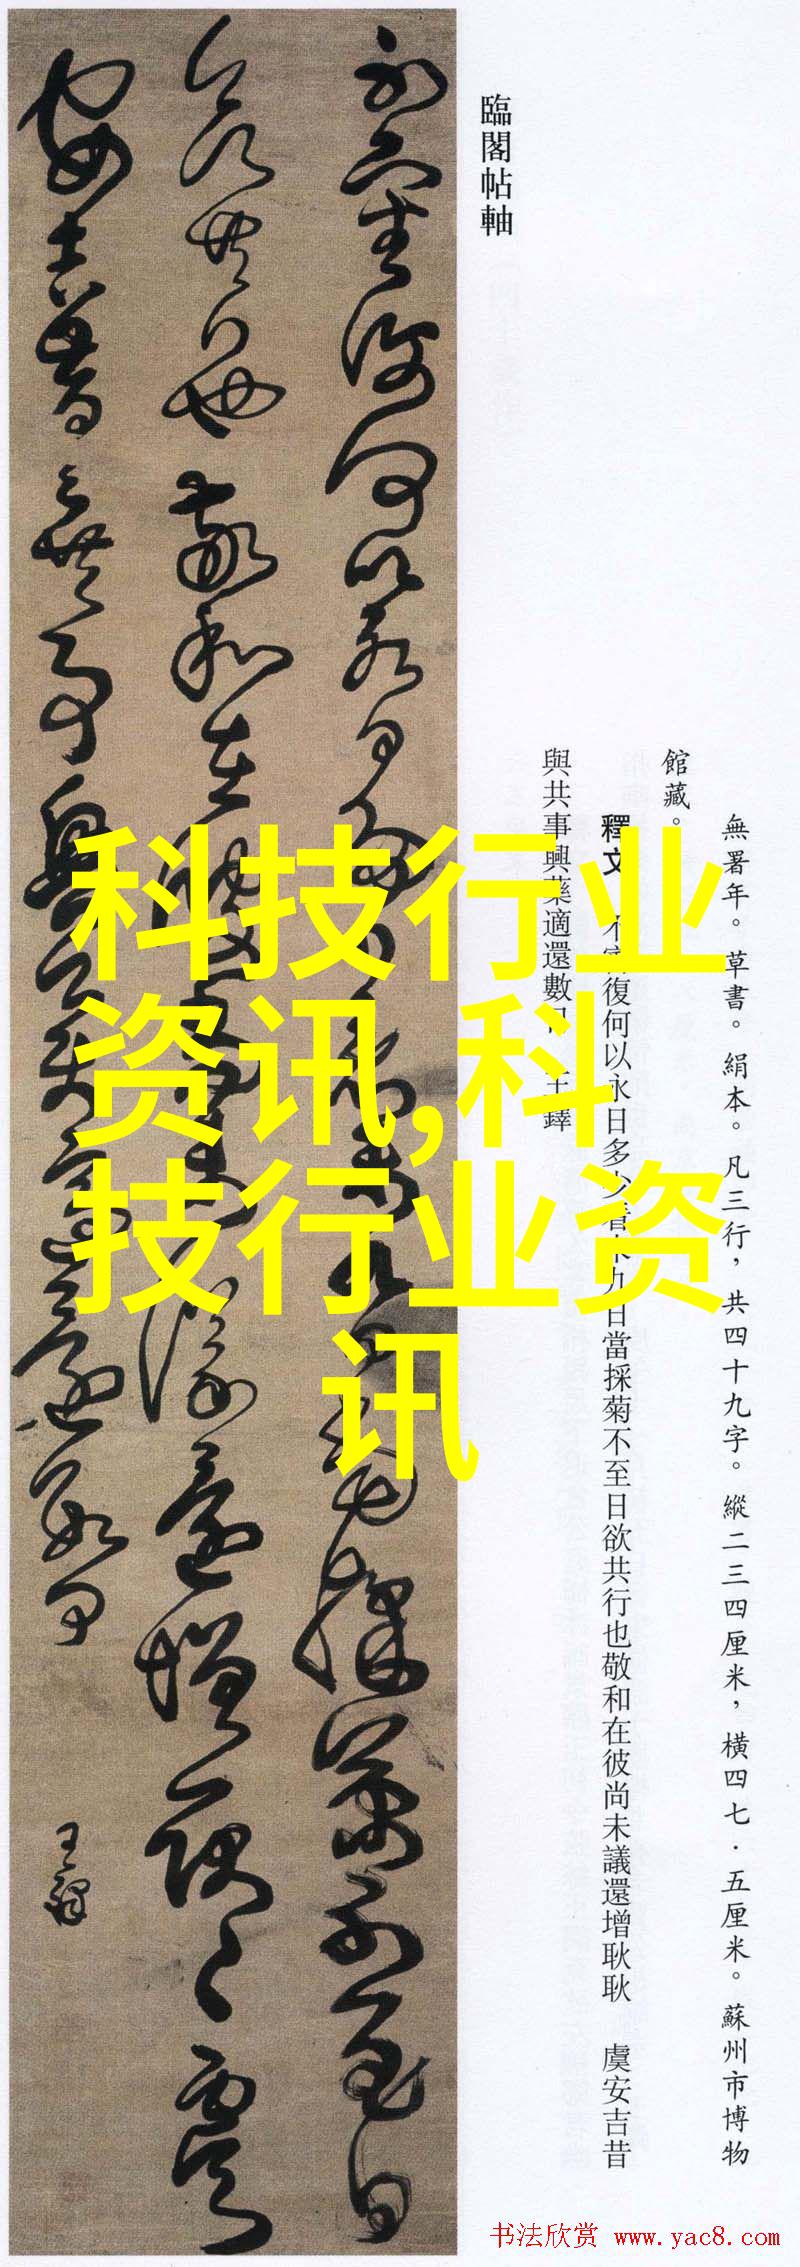 臨閣帖軸
無署年。草書。絹本。凡三行，共四十九字。縱二三四厘米，橫四七．五厘米。蘇州市博物
館藏。
釋文　不審復何以永日多少看未九日當採菊不至日欲共行也敬和在彼尚未議還增耿耿　虞安吉昔
與共事興藥適還數日　王鐸
科技行业
资讯,科
技行业资
讯
书法欣赏 www.yac8.com